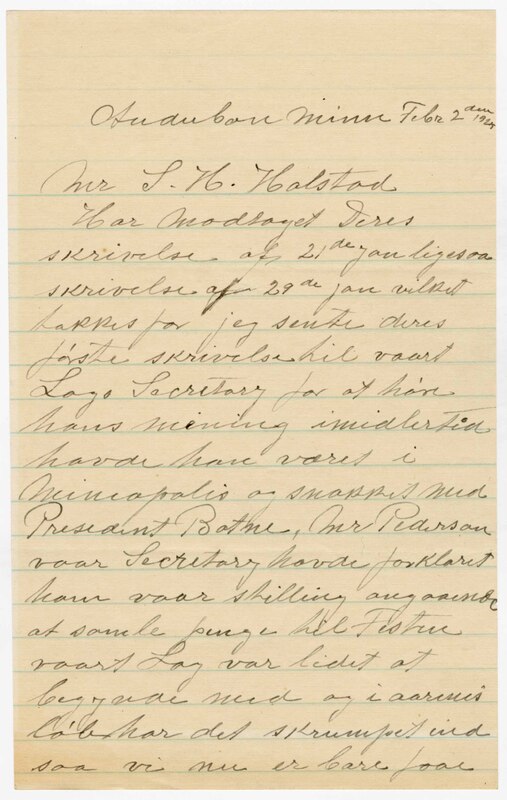 Audubon Minn Febr 2 den 1925
Mr S. H. Holstad
Har Modtaget Deres
skrivelse af 21 de jan ligesaa
skrivelse af 29 de jan vilket
takkes for jeg sente deres
første skrivelse til vaart
Lags Secretary for at høre
hans mening imidlertid
havde han været i
Mineapolis og snakket med
President Bothne, Mr Pederson
vaar Secretary havde forklaret
ham vaar stilling angaaende
at samle penge til Festen
vaart Lag var lidet at
begynde med og i aarenis
løb har det skrumpet ind
saa vi nu er bare faae